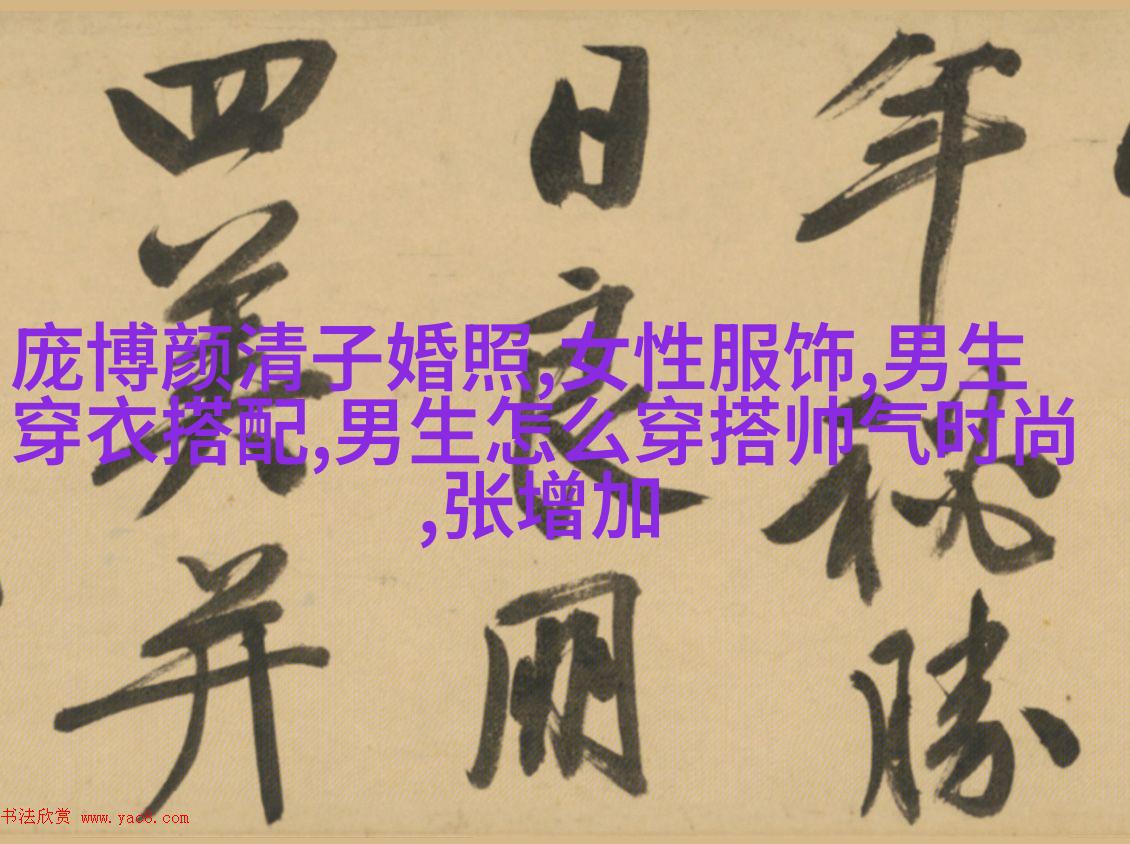 年祕勝
日良朋
四美并
庞博颜清子婚照,女性服饰,男生
穿衣搭配,男生怎么穿搭帅气时尚
,张增加
书法欣赏 www.yac8.com